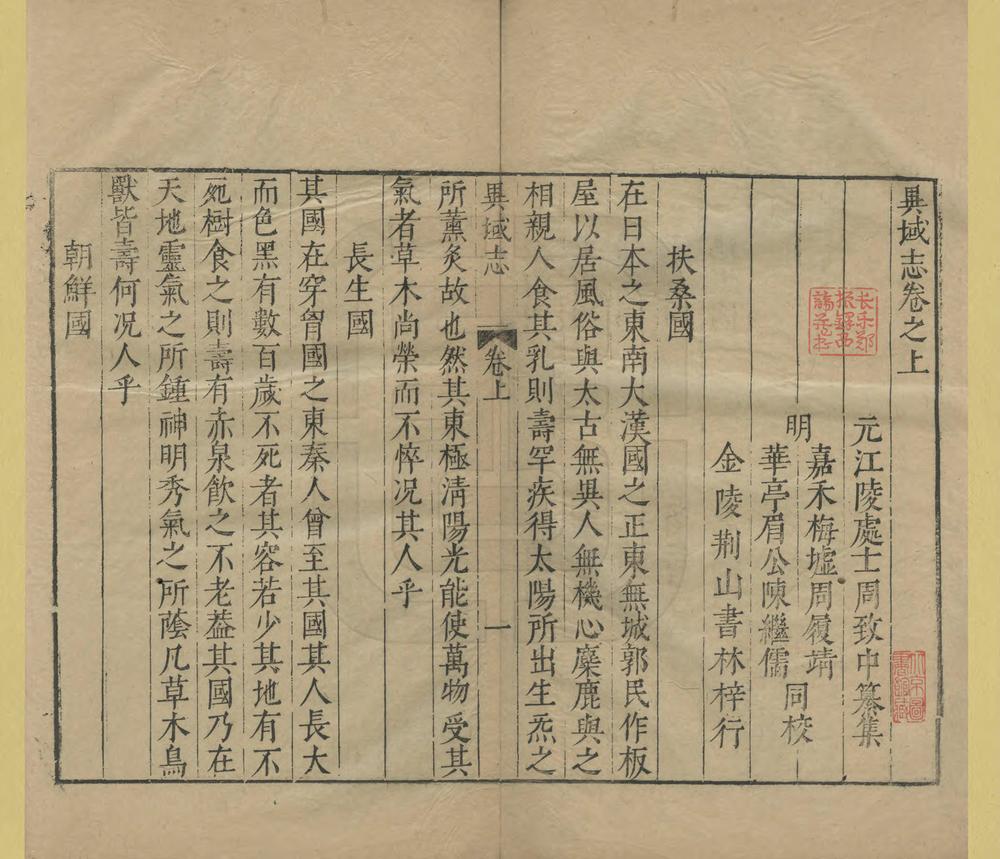 異域志卷之上
元江陵處士周致中纂集
嘉禾梅墟周履靖
明
華亭眉公陳繼儒
同校
金陵荆山書林梓行
扶桑國
在日本之東南大漢國之正東無城郭民作板
屋以居風俗與太古無異人無機心麋鹿與之
相親人食其乳則壽罕疾得太陽所出生炁之
異域志
卷上
一
所薰炙故也然其東極清陽光能使萬物受其
氣者草木尚榮而不悴况其人乎
長生國
其國在穿胷國之東秦人曾至其國其人長大
而色黑有數百歲不死者其容若少其地有不
死樹食之則壽有赤泉飲之不老葢其國乃在
天地靈氣之所鍾神明秀氣之所蔭凡草木鳥
獸皆壽何况人乎
朝鮮國
长乐郑
振铎西
諦藏书
北京圖
書館藏